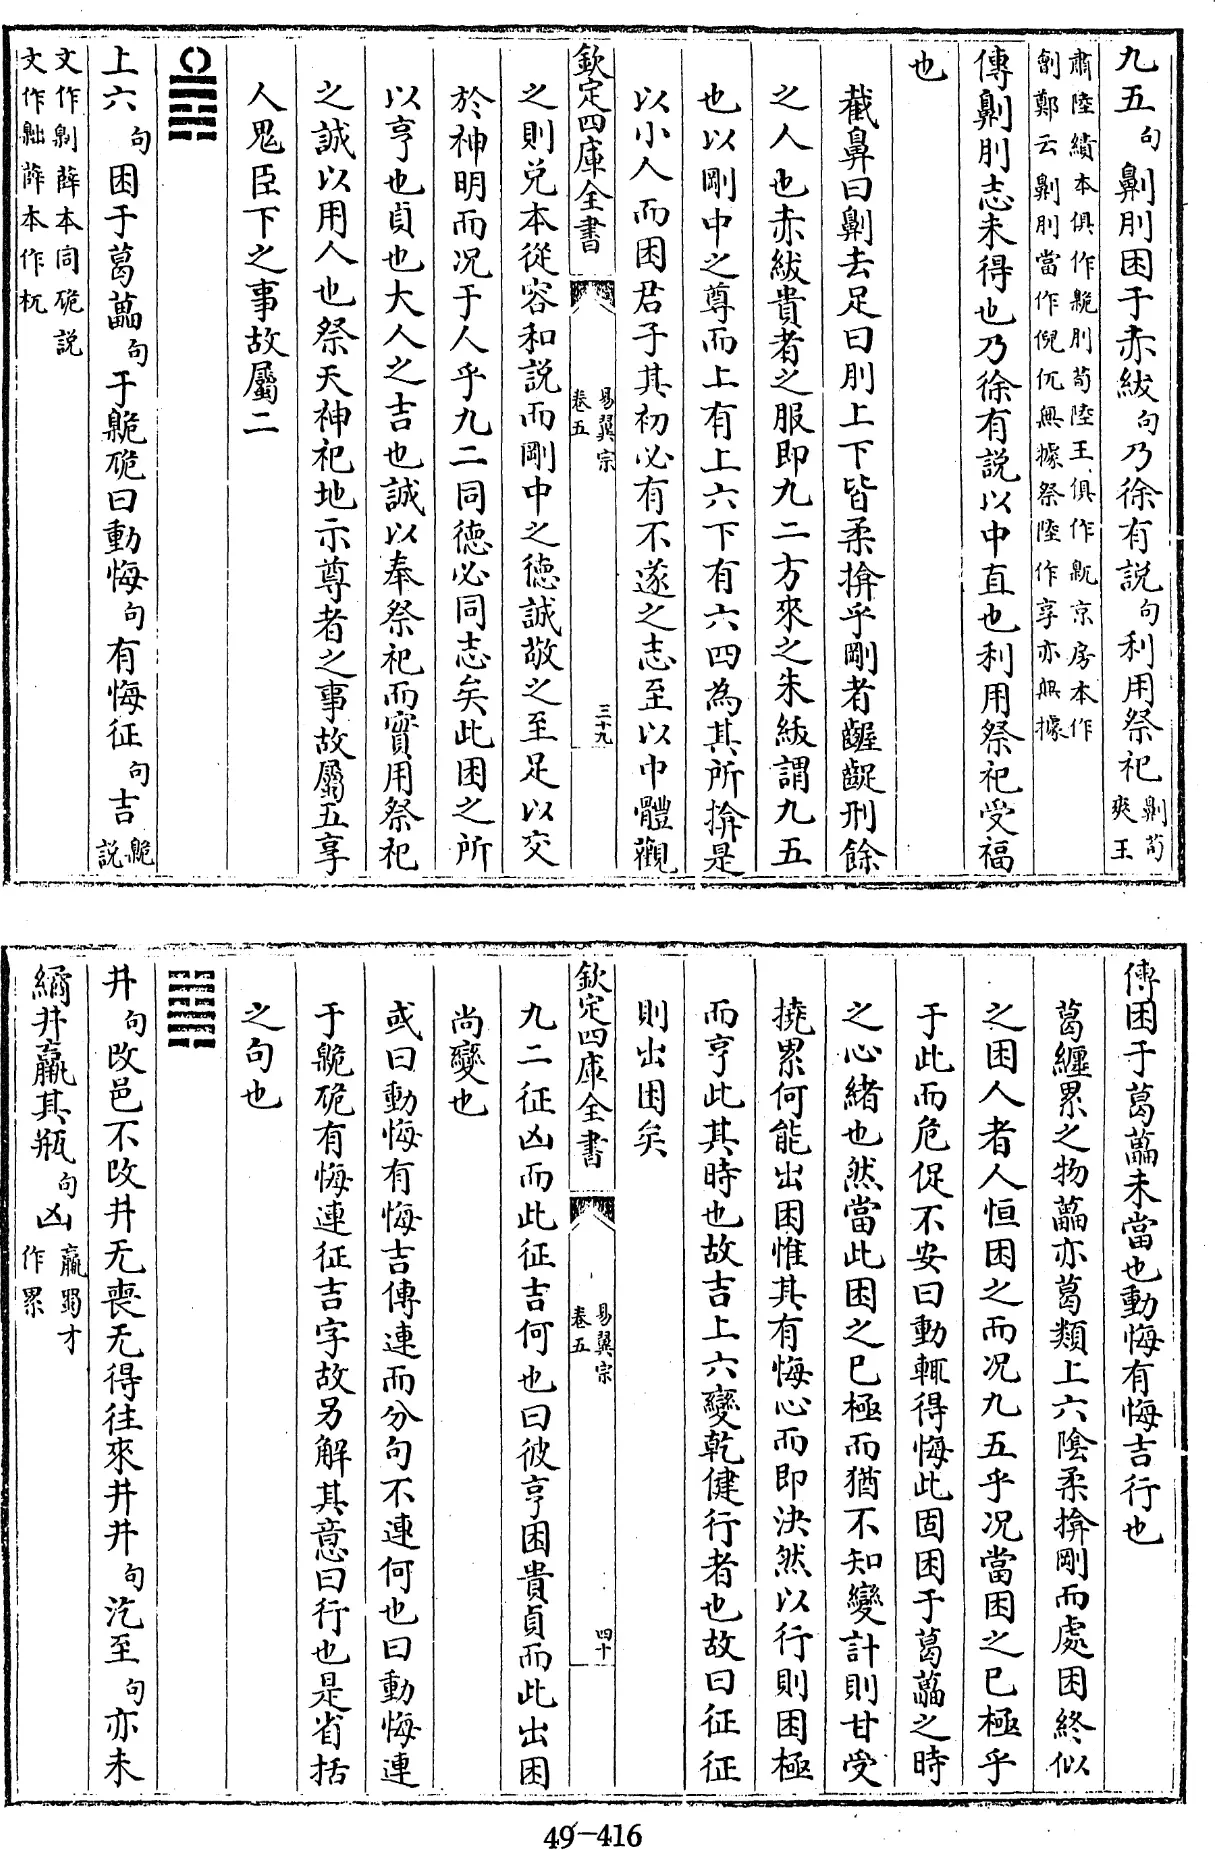 九五句劓刖困于赤紱句乃徐有説句利用祭祀劓荀爽王
肅陸績本俱作臲刖荀陸王俱作臲京房本作
劊鄭云劓刖當作倪㐳無據祭陸作享亦無據
傳劓刖志未得也乃徐有説以中直也利用祭祀受福
也
截鼻曰劓去足曰刖上下皆柔揜乎剛者齷齪刑餘
之人也赤紱貴者之服即九二方來之朱紱謂九五
也以剛中之尊而上有上六下有六四為其所揜是
以小人而困君子其初必有不遂之志至以中體觀
欽定四庫全書
易翼宗
卷五
三十九
之則兑本從容和説而剛中之德誠敬之至足以交
於神明而况于人乎九二同德必同志矣此困之所
以亨也貞也大人之吉也誠以奉祭祀而實用祭祀
之誠以用人也祭天神祀地示尊者之事故屬五享
人鬼臣下之事故屬二
上六句困于葛藟句于臲硊曰動悔句有悔征句吉臲説
文作劓薛本同硊説
文作䵳薛本作杌
傳困于葛藟未當也動悔有悔吉行也
葛纏累之物藟亦葛類上六陰柔揜剛而處困終似
之困人者人恒困之而况九五乎况當困之已極乎
于此而危促不安曰動輒得悔此固困于葛藟之時
之心緒也然當此困之已極而猶不知變計則甘受
撓累何能出困惟其有悔心而即決然以行則困極
而亨此其時也故吉上六變乾健行者也故曰征征
則出困矣
欽定四庫全書
易翼宗
卷五
四十
九二征凶而此征吉何也曰彼亨困貴貞而此出困
尚變也
或曰動悔有悔吉傳連而分句不連何也曰動悔連
于臲硊有悔連征吉字故另解其意曰行也是省括
之句也
井句改邑不改井无喪无得往來井井句汔至句亦未
繘井羸其瓶句凶羸蜀才
作累
49-416